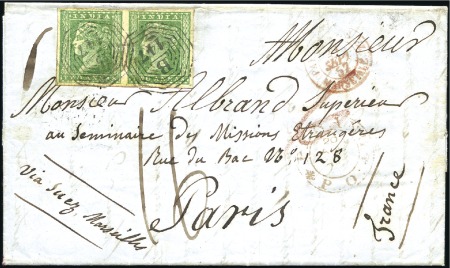 INDIA INDIA
Monsieur
Monsieur Albrand Supérieur
au Seminaire des Missions Etrangéres
Rue du Bac No. 128
Paris
France
Via Suez Marseilles
16
P. O.